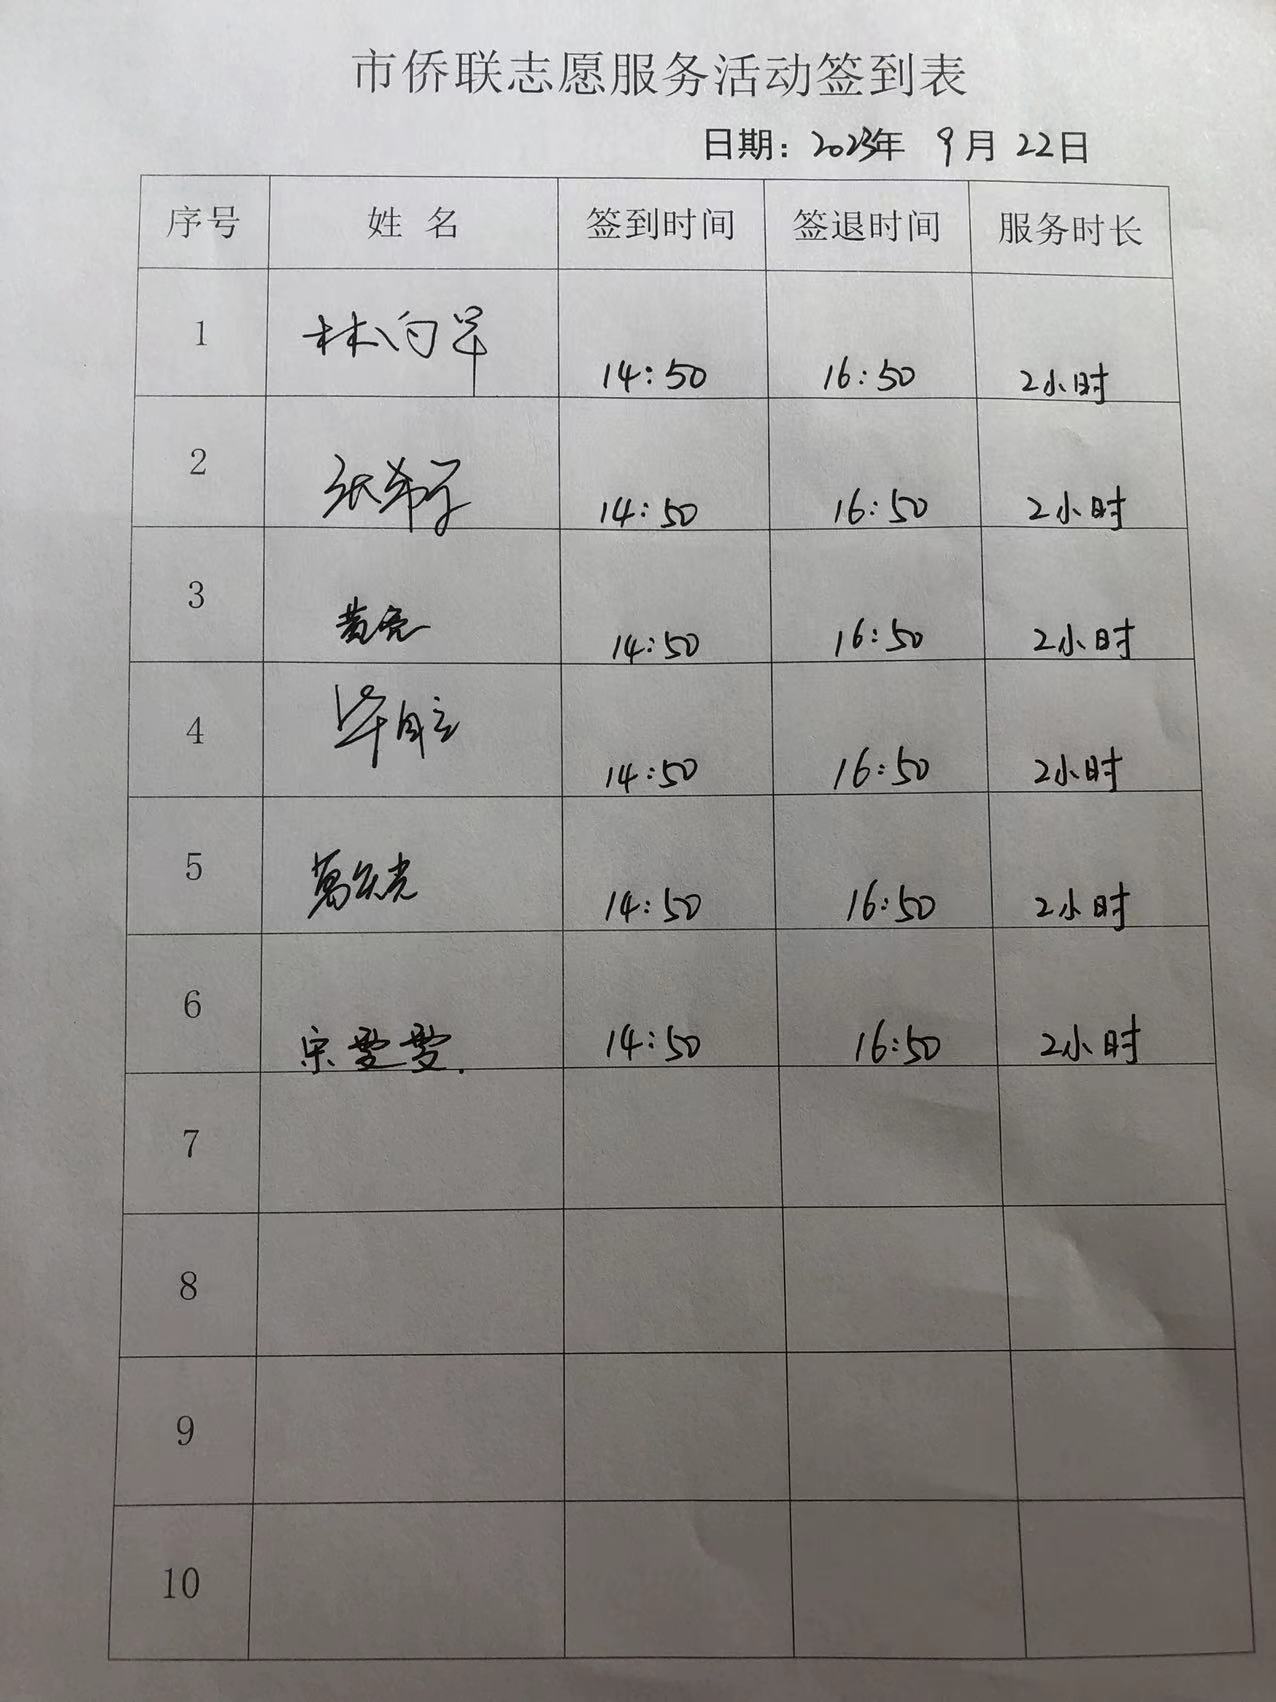 市侨联志愿服务活动签到表
日期: 2023年 9月 22日
序号 姓 名 签到时间 签退时间 服务时长
1 林向早 14:50 16:50 2小时
2 张希子 14:50 16:50 2小时
3 黄亮 14:50 16:50 2小时
4 14:50 16:50 2小时
5 14:50 16:50 2小时
6 宋雯雯. 14:50 16:50 2小时
7
8
9
10